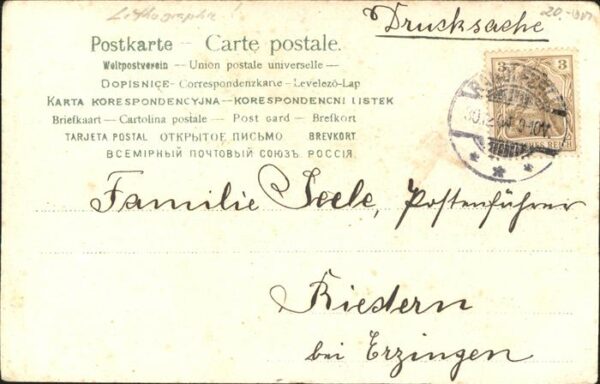 Lithographie!
Drucksache
Postkarte – Carte postale.
Weltpostverein – Union postale universelle –
DOPISNICE – Correspondenzkarte – Levelező-Lap
KARTA KORESPONDENCYJNA – KORESPONDENCNI LISTEK
Briefkaart – Cartolina postale – Post card – Brefkort
TARJETA POSTAL ОТКРЫТОЕ ПИСЬМО BREVKORT
ВСЕМІРНЫЙ ПОЧТОВЫЙ СОЮЗЪ. РОССІЯ.
3 3
REICH
Familie Seele, Postenführer
Riedern
bei Erzingen